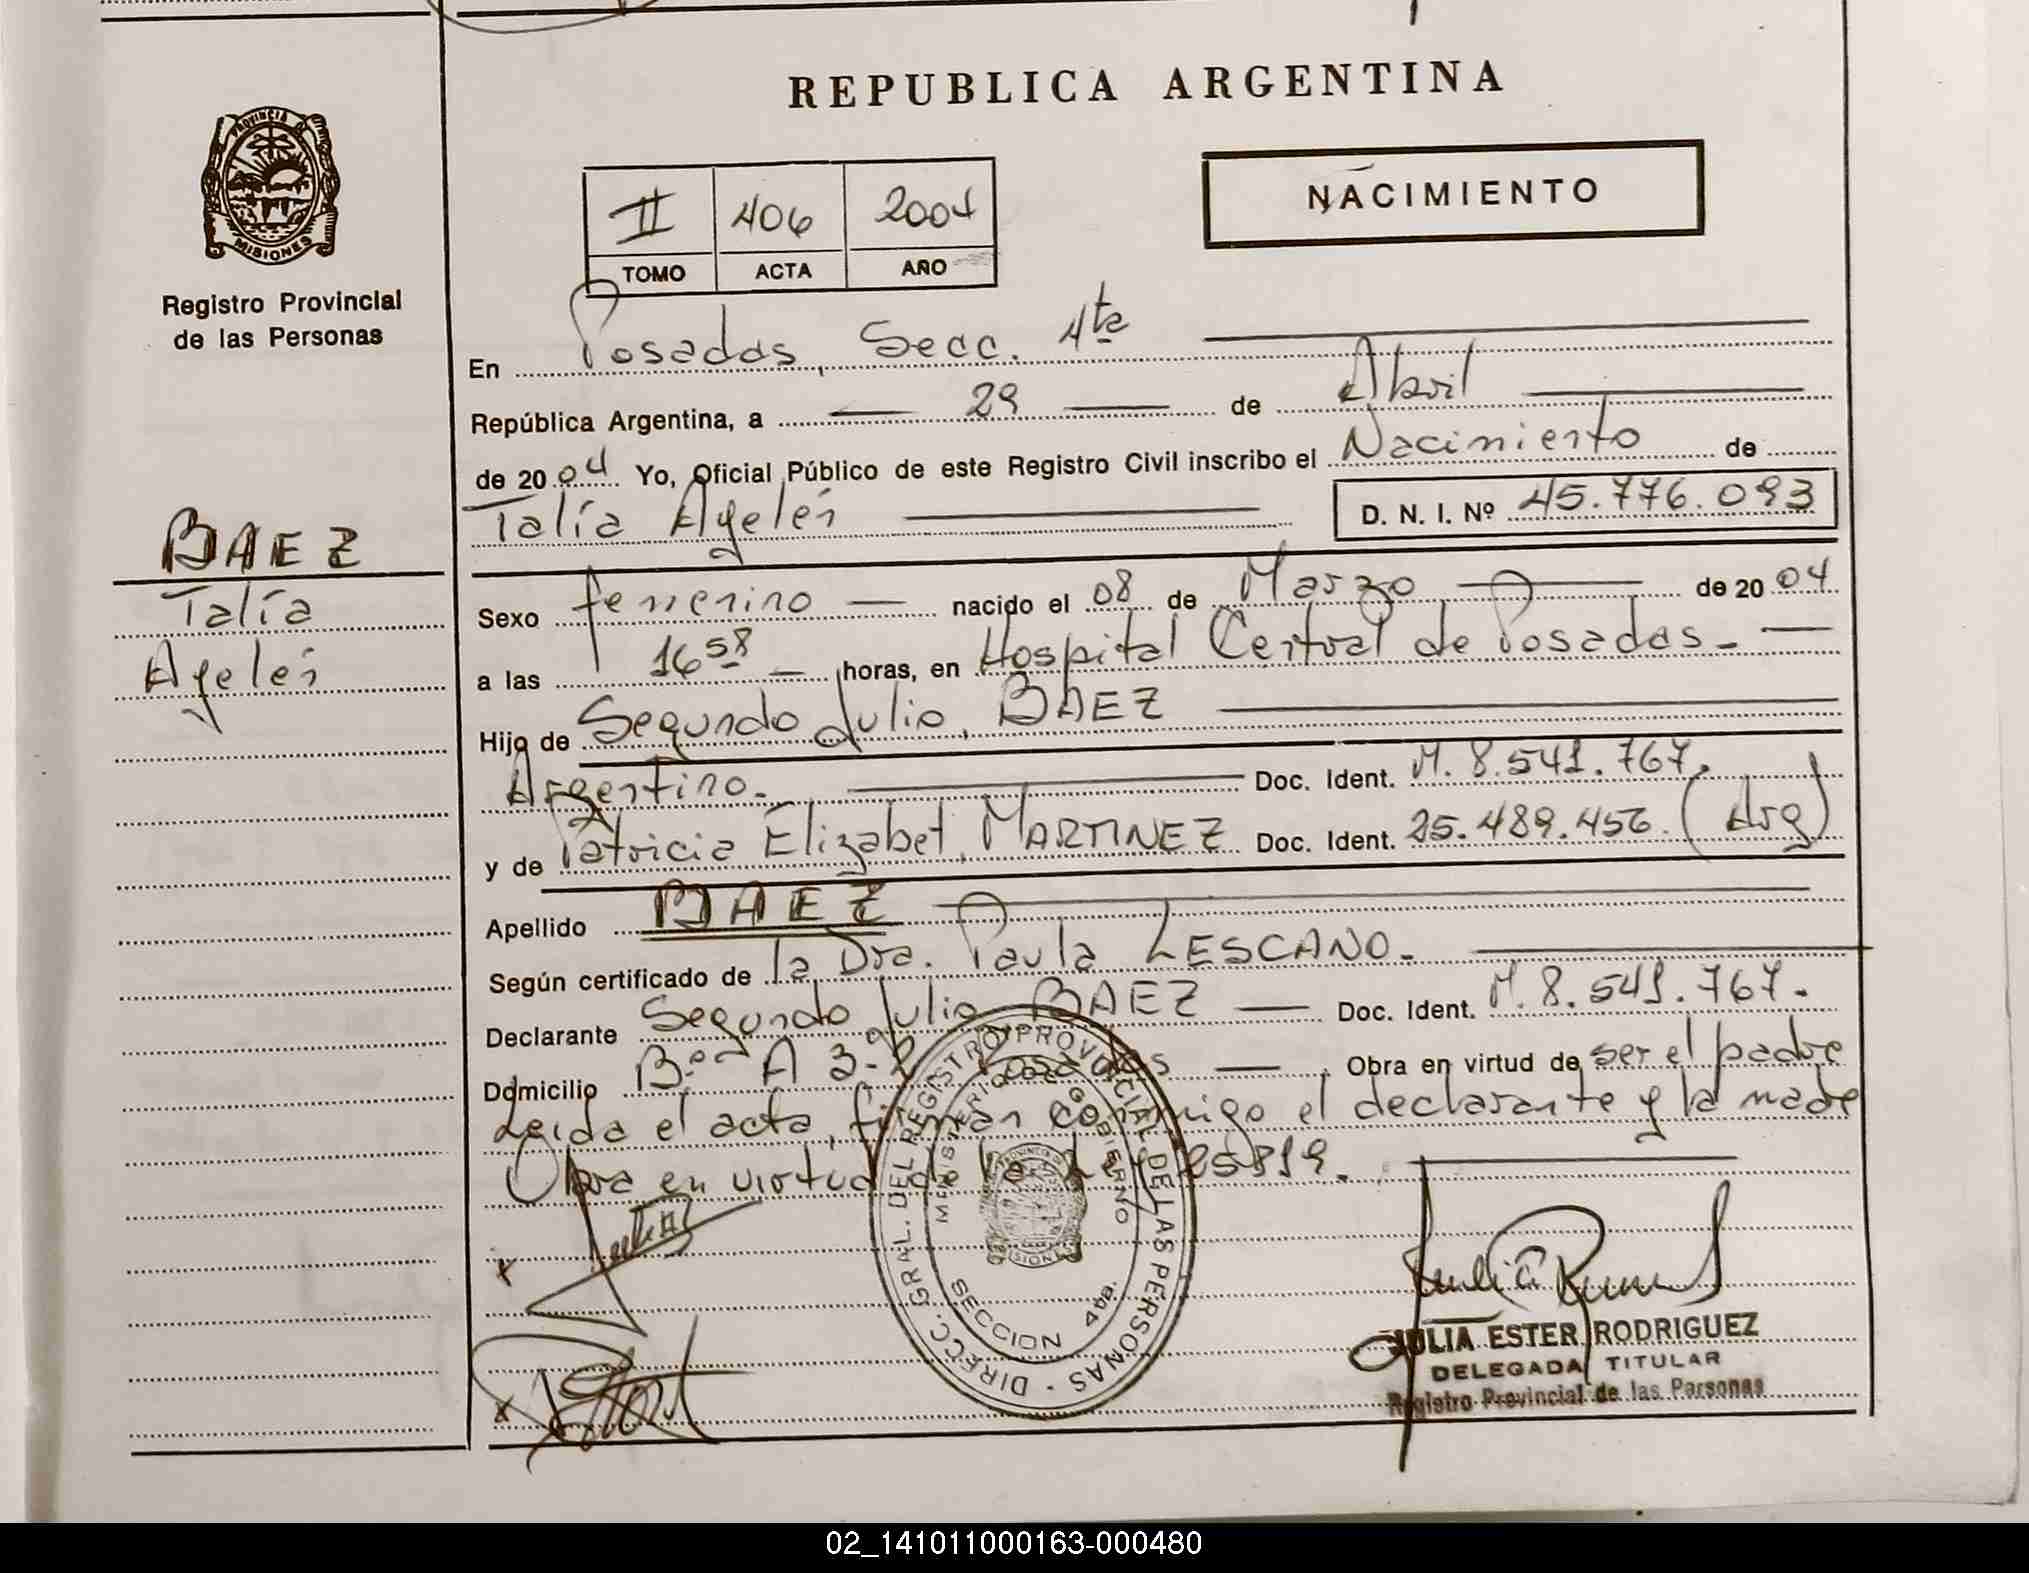 REPUBLICA ARGENTINA
PROVINCIA DE MISIONES
Registro Provincial
de las Personas
II 406 2004
TOMO ACTA AÑO
NACIMIENTO
En Posadas, Secc. 4ta
República Argentina, a 29 de Abril
de 2004 Yo, Oficial Público de este Registro Civil inscribo el Nacimiento de
Talía Ayelén D. N. I. Nº 45.776.093
BAEZ
Talía
Ayelén
Sexo femenino nacido el 08 de Marzo de 2004
a las 16 58 horas, en Hospital Central de Posadas.
Hijo de Segundo Julio, BAEZ
Argentino. Doc. Ident. M. 8.541.767.
y de Patricia Elizabet, MARTINEZ Doc. Ident. 25.489.456. (Arg)
Apellido BAEZ
Según certificado de la Dra. Paula LESCANO.
Declarante Segundo Julio BAEZ Doc. Ident. M. 8.541.767.
Domicilio Bº A 3-2 Posadas Obra en virtud de ser el padre
Leida el acta, firman conmigo el declarante y la madre
Obra en virtud de la Ley 25819.
DIRECC. GRAL. DEL REGISTRO PROVINCIAL DE LAS PERSONAS
MINISTERIO DE GOBIERNO
SECCION 4ta.
x
x
JULIA ESTER RODRIGUEZ
DELEGADA TITULAR
Registro Provincial de las Personas
02_141011000163-000480